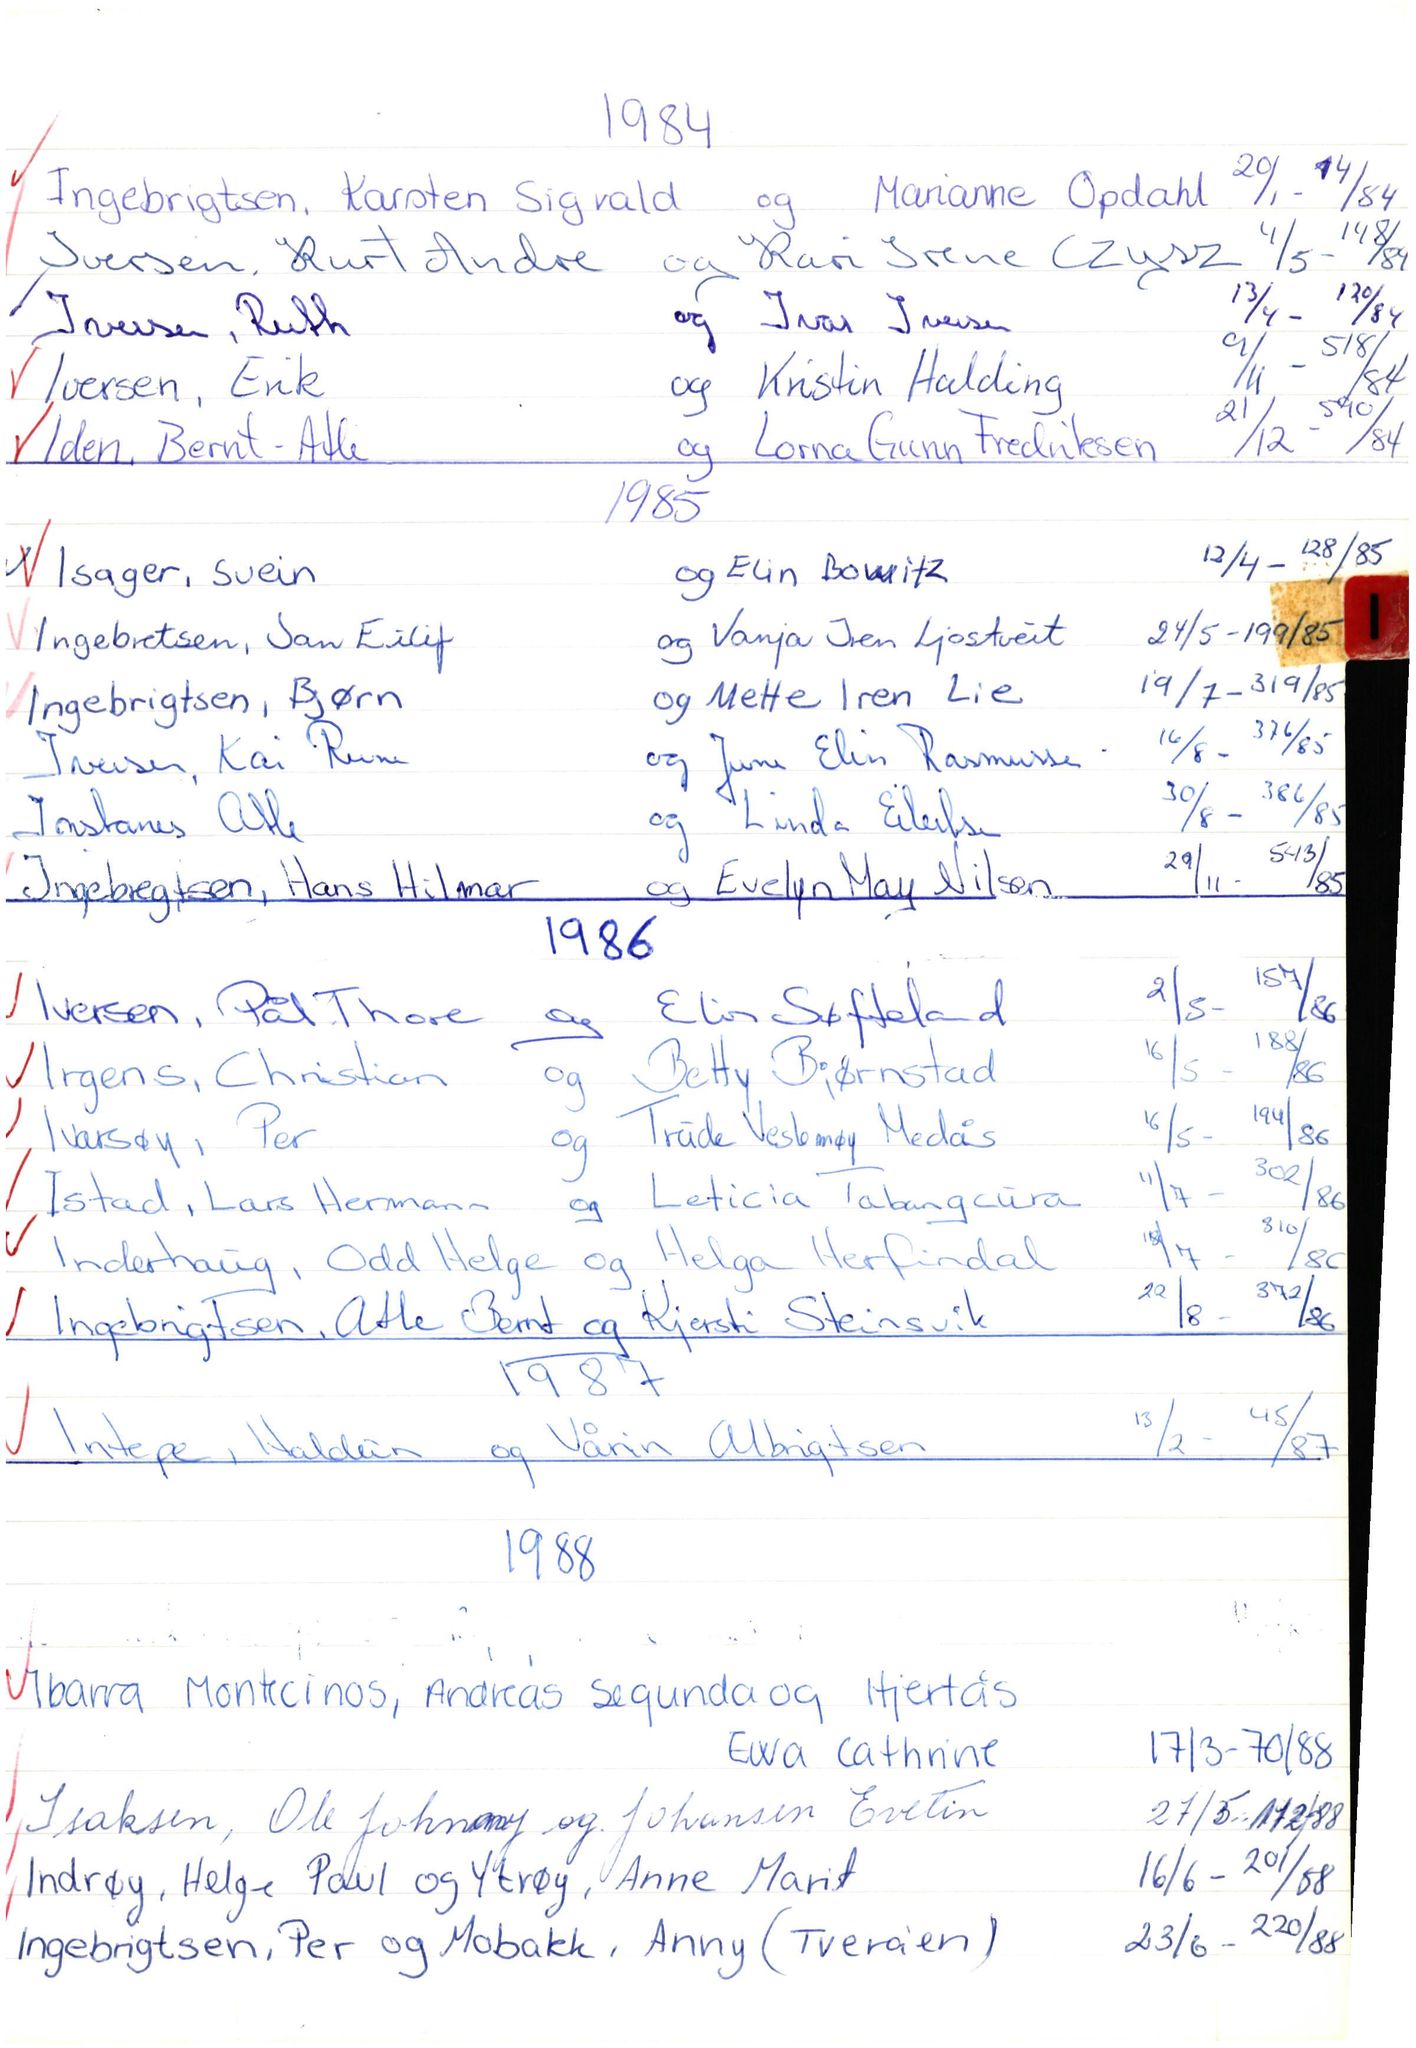 1984
Ingebrigtsen, Karsten Sigvald og Marianne Opdahl 20/1 - 14/84
Iversen, Kurt Andre og Kari Irene Czysz 4/5 - 148/84
Iversen, Ruth og Ivar Iversen 13/4 - 120/84
Iversen, Erik og Kristin Halding 9/11 - 518/84
Iden, Bernt-Atle og Lorna Gunn Fredriksen 21/12 - 590/84
1985
Isager, Svein og Elin Bowitz 12/4 - 128/85
Ingebretsen, Jan Eilif og Vanja Iren Ljostveit 24/5 - 199/85
I
Ingebrigtsen, Bjørn og Mette Iren Lie 19/7 - 319/85
Iversen, Kai Rune og June Elin Rasmussen 16/8 - 376/85
Instanes Atle og Linda 30/8 - 386/85
Ingebregtsen, Hans Hilmar og Evelyn May Nilsen 29/11 - 543/85
1986
Iversen, Pål Thore og Elin Søfteland 2/5 - 157/86
Irgens, Christian og Betty Bjørnstad 16/5 - 188/86
Ivarsøy, Per og Trude Veslemøy Medås 16/5 - 194/86
Istad, Lars Hermann og Leticia Tabangcura 11/7 - 302/86
Inderhaug, Odd Helge og Helga Herfindal 18/7 - 310/86
Ingebrigtsen, Atle Bernt og Kjersti Steinsvik 22/8 - 372/86
1987
Intepe, Haldun og Vårin Albrigtsen 13/2 - 45/87
1988
Ibarra Montecinos, Andreas Segunda og Hjertås
Ewa Cathrine 17/3 - 70/88
Isaksen, Ole Johnny og Johansen Evelin 27/5 - 172/88
Indrøy, Helge Paul og Ytrøy, Anne Marit 16/6 - 201/88
Ingebrigtsen, Per og Mobakk, Anny (Tveraien) 23/6 - 220/88